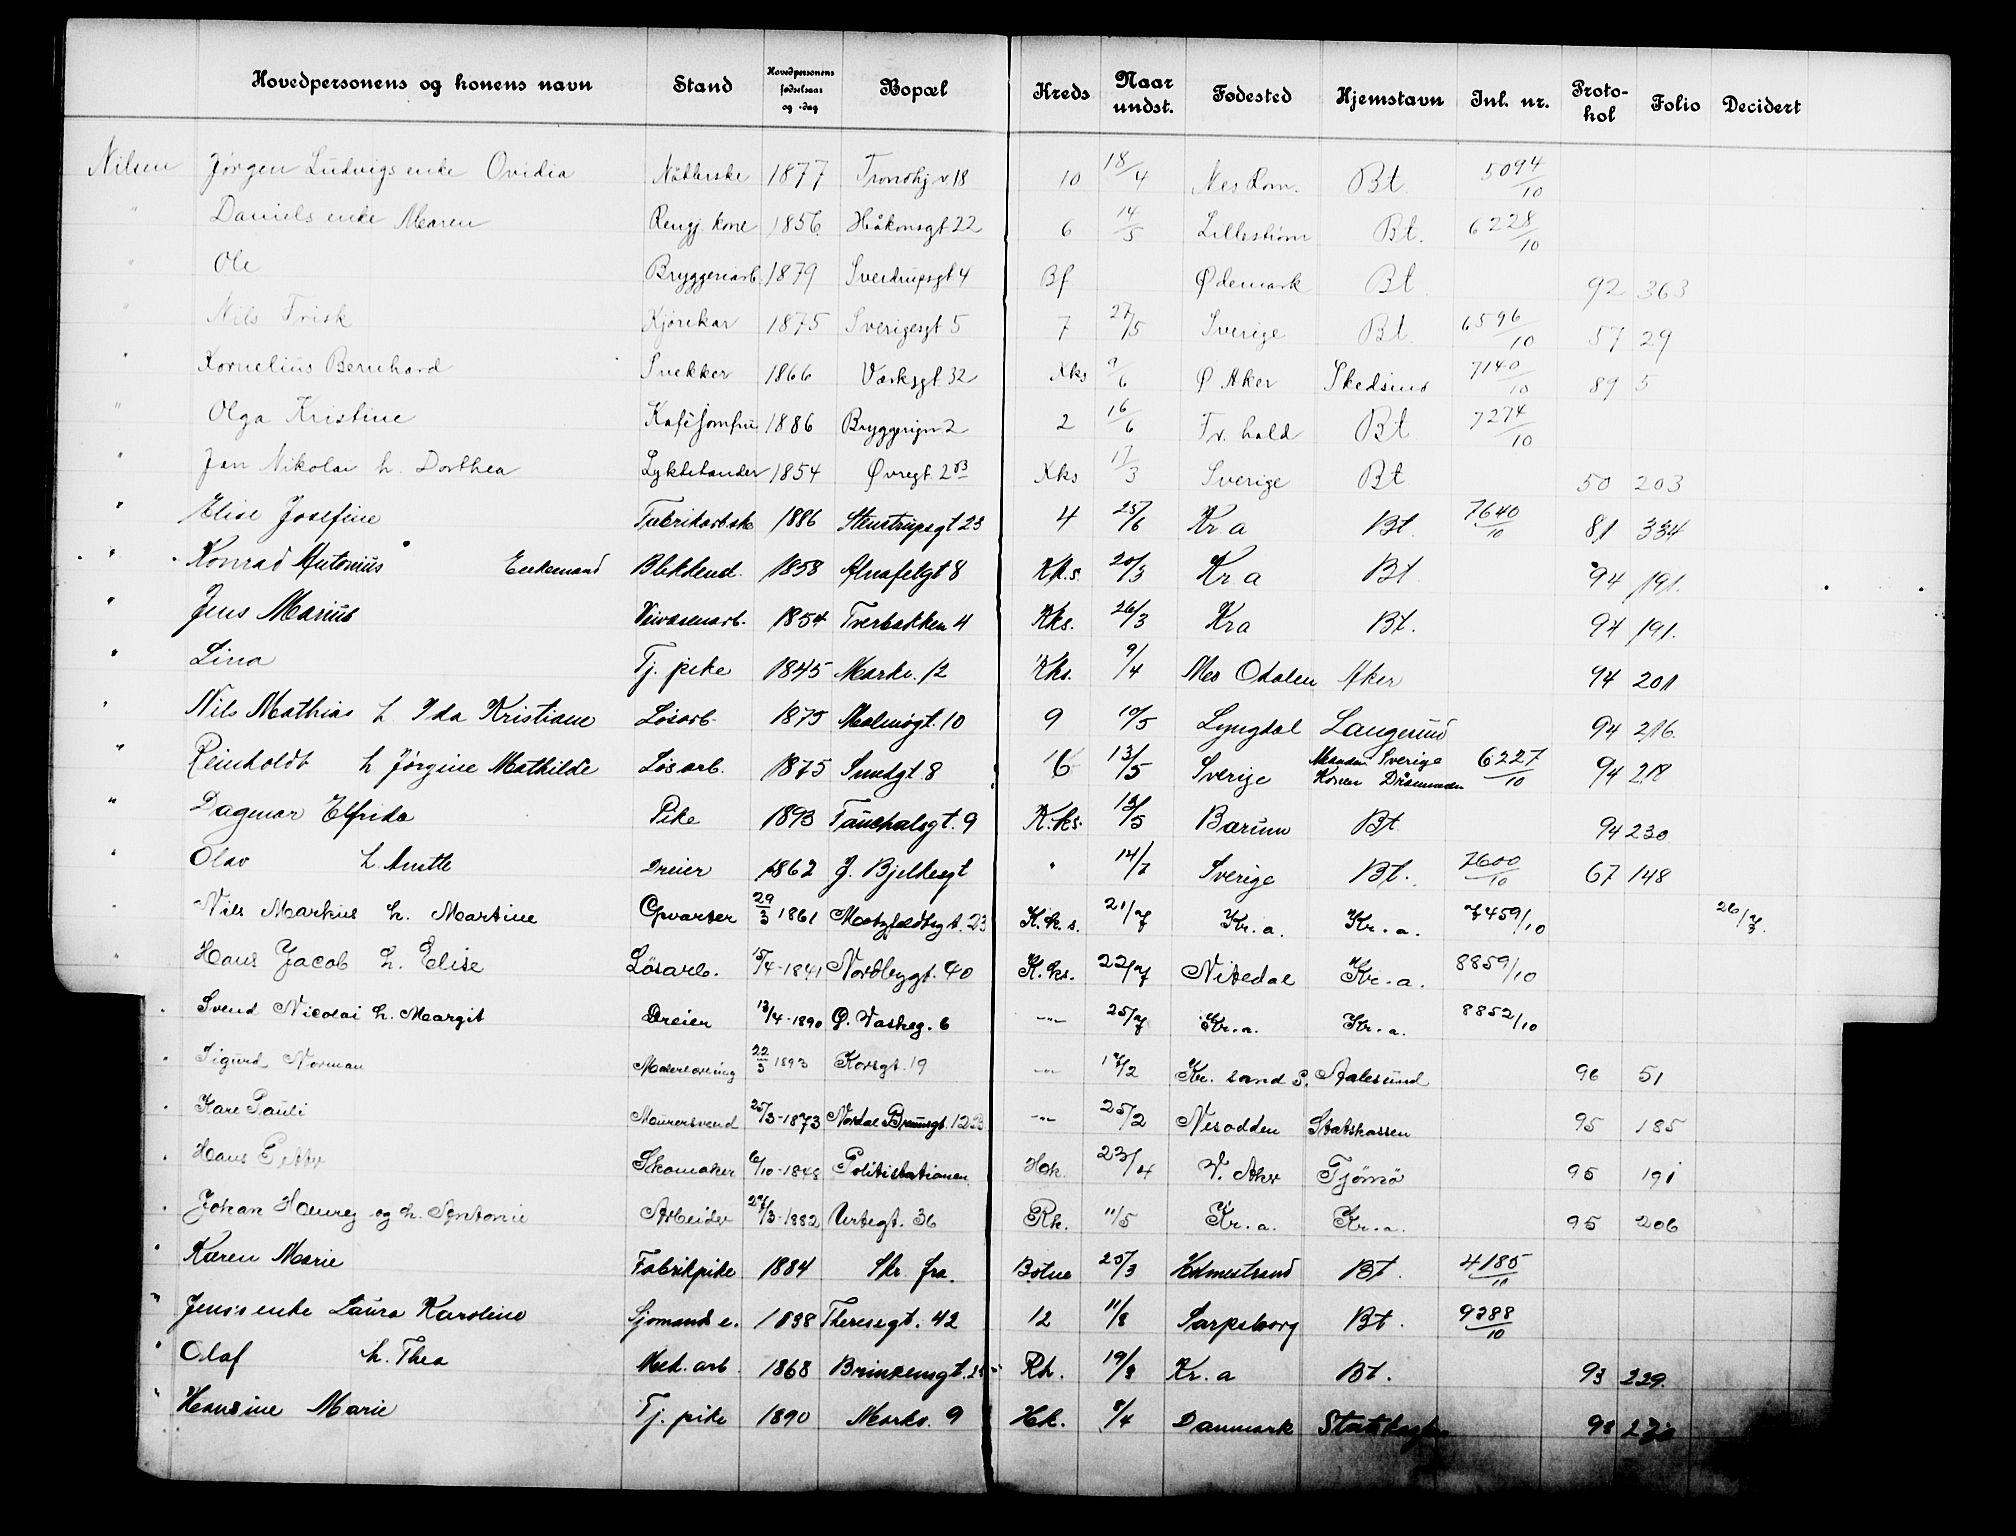 Hovedpersonens og konens navn Stand Hovedpersonens fødselsaar og -dag Bopæl Kreds Naar undst. Fødested Hjemstavn Inl. nr. Protokol Folio Decidert
Nilsen Jørgen Ludvigs enke Ovidia Nåtlerske 1877 Trondhj.v. 18 10 18/4 Nes Rom. Bt. 5094/10
" Daniels enke Maren Rengj. kone 1856 Håkonsgt 22 6 14/5 Lillestrøm Bt. 6228/10
" Ole Bryggeriarb. 1879 Sverdrupsgt 4 Bf Ødemark Bt 92 363
" Nils Frisk Kjørekar 1875 Sverigesgt 5 7 27/5 Sverige Bt. 6596/10 57 29
" Kornelius Bernhard Snekker 1866 Værksgt 32 Kks 9/6 Ø Aker Skedsmo 7140/10 89 5
" Olga Kristine Kaféjomfru 1886 Bryggrign 2 2 16/6 Fr. hald Bt. 7274/10
" Jan Nikolai h. Dorthea Lyktetænder 1854 Øvregt. 2 B Kks 17/3 Sverige Bt 50 203
" Elise Josefine Fabrikarbske 1886 Stenstrupsgt 23 4 25/6 Kr a Bt. 7640/10 81 334
" Konrad Antonius Enkemand Blikkensl. 1858 Alnafetgt 8 Kk.s. 20/3 Kr a Bt. 94 191.
" Jens Marius Veivæsenarb. 1854 Tverbakken 4 Kks. 26/3 Kra Bt. 94 191.
" Lina Tj. pike 1845 Markv. 12 Kks. 9/4 Nes Odalen Aker 94 201
" Nils Mathias h. Ida Kristiane Løsarb. 1875 Malmøgt. 10 9 10/5 Lyngdal Laugerud 94 216.
" Reinholdt h Jørgine Mathilde Løsarb. 1875 Sundgt 8 6 13/5 Sverige Manden Sverige Konen Drammen 6227/10 94 218
" Dagmar Elfrida Pike 1893 Fauchalsgt. 9 K.ks. 13/5 Bærum Bt. 94 230
" Olav h. Anette Dreier 1862 J. Bjelkesgt " 14/7 Sverige Bt. 7600/10 67 148
" Nils Markus h. Martine Opvarter 29/3 1861 Motzfeldtsgt. 23 K.k.s. 21/7 Kr. a. Kr. a. 7459/10 26/7.
" Hans Jacob h. Elise Løsarb. 15/4-1841 Nordbygt. 40 K.ks. 22/7 Nitedal Kr. a. 8859/10
" Svend Nicolai h. Margit Dreier 13/4-1890 Ø. Vaskeg. 6 -"- 25/7 Kr. a. Kr. a. 8852/10
" Sigurd Norman Malerlærling 22/3 1893 Korsgt. 19 -"- 17/2 Kr. sand S. Aalesund 96 51
" Kare Pauli Murersvend 25/3-1873 Nordal Brunsgt. 12 B -"- 25/2 Nesodden Statskassen 95 185
" Hans Petter Skomaker 6/10-1848 Politistationen Hok. 23/4 V. Aker Tjømø 95 191
" Johan Henrey og h. Antonie Arbeider 27/3-1882 Urtegt. 36 Rk. 11/5 Kr. a. Kr. a. 95 206
" Karen Marie Fabrikpike 1884 Skr. fra Botne 25/3 Holmestrand Bt. 4185/11
" Jens's enke Laura Karoline Sjømands e. 1838 Theresegt. 42 12 11/8 Sarpsborg Bt. 9288/10
" Olaf h. Thea Mek. arb. 1868 Brinkensgt. Rk. 19/8 Kr. a Bt. 93 229.
" Hansine Marie Tj. pike 1890 Markv. 9 Hk. 8/4 Danmark 98